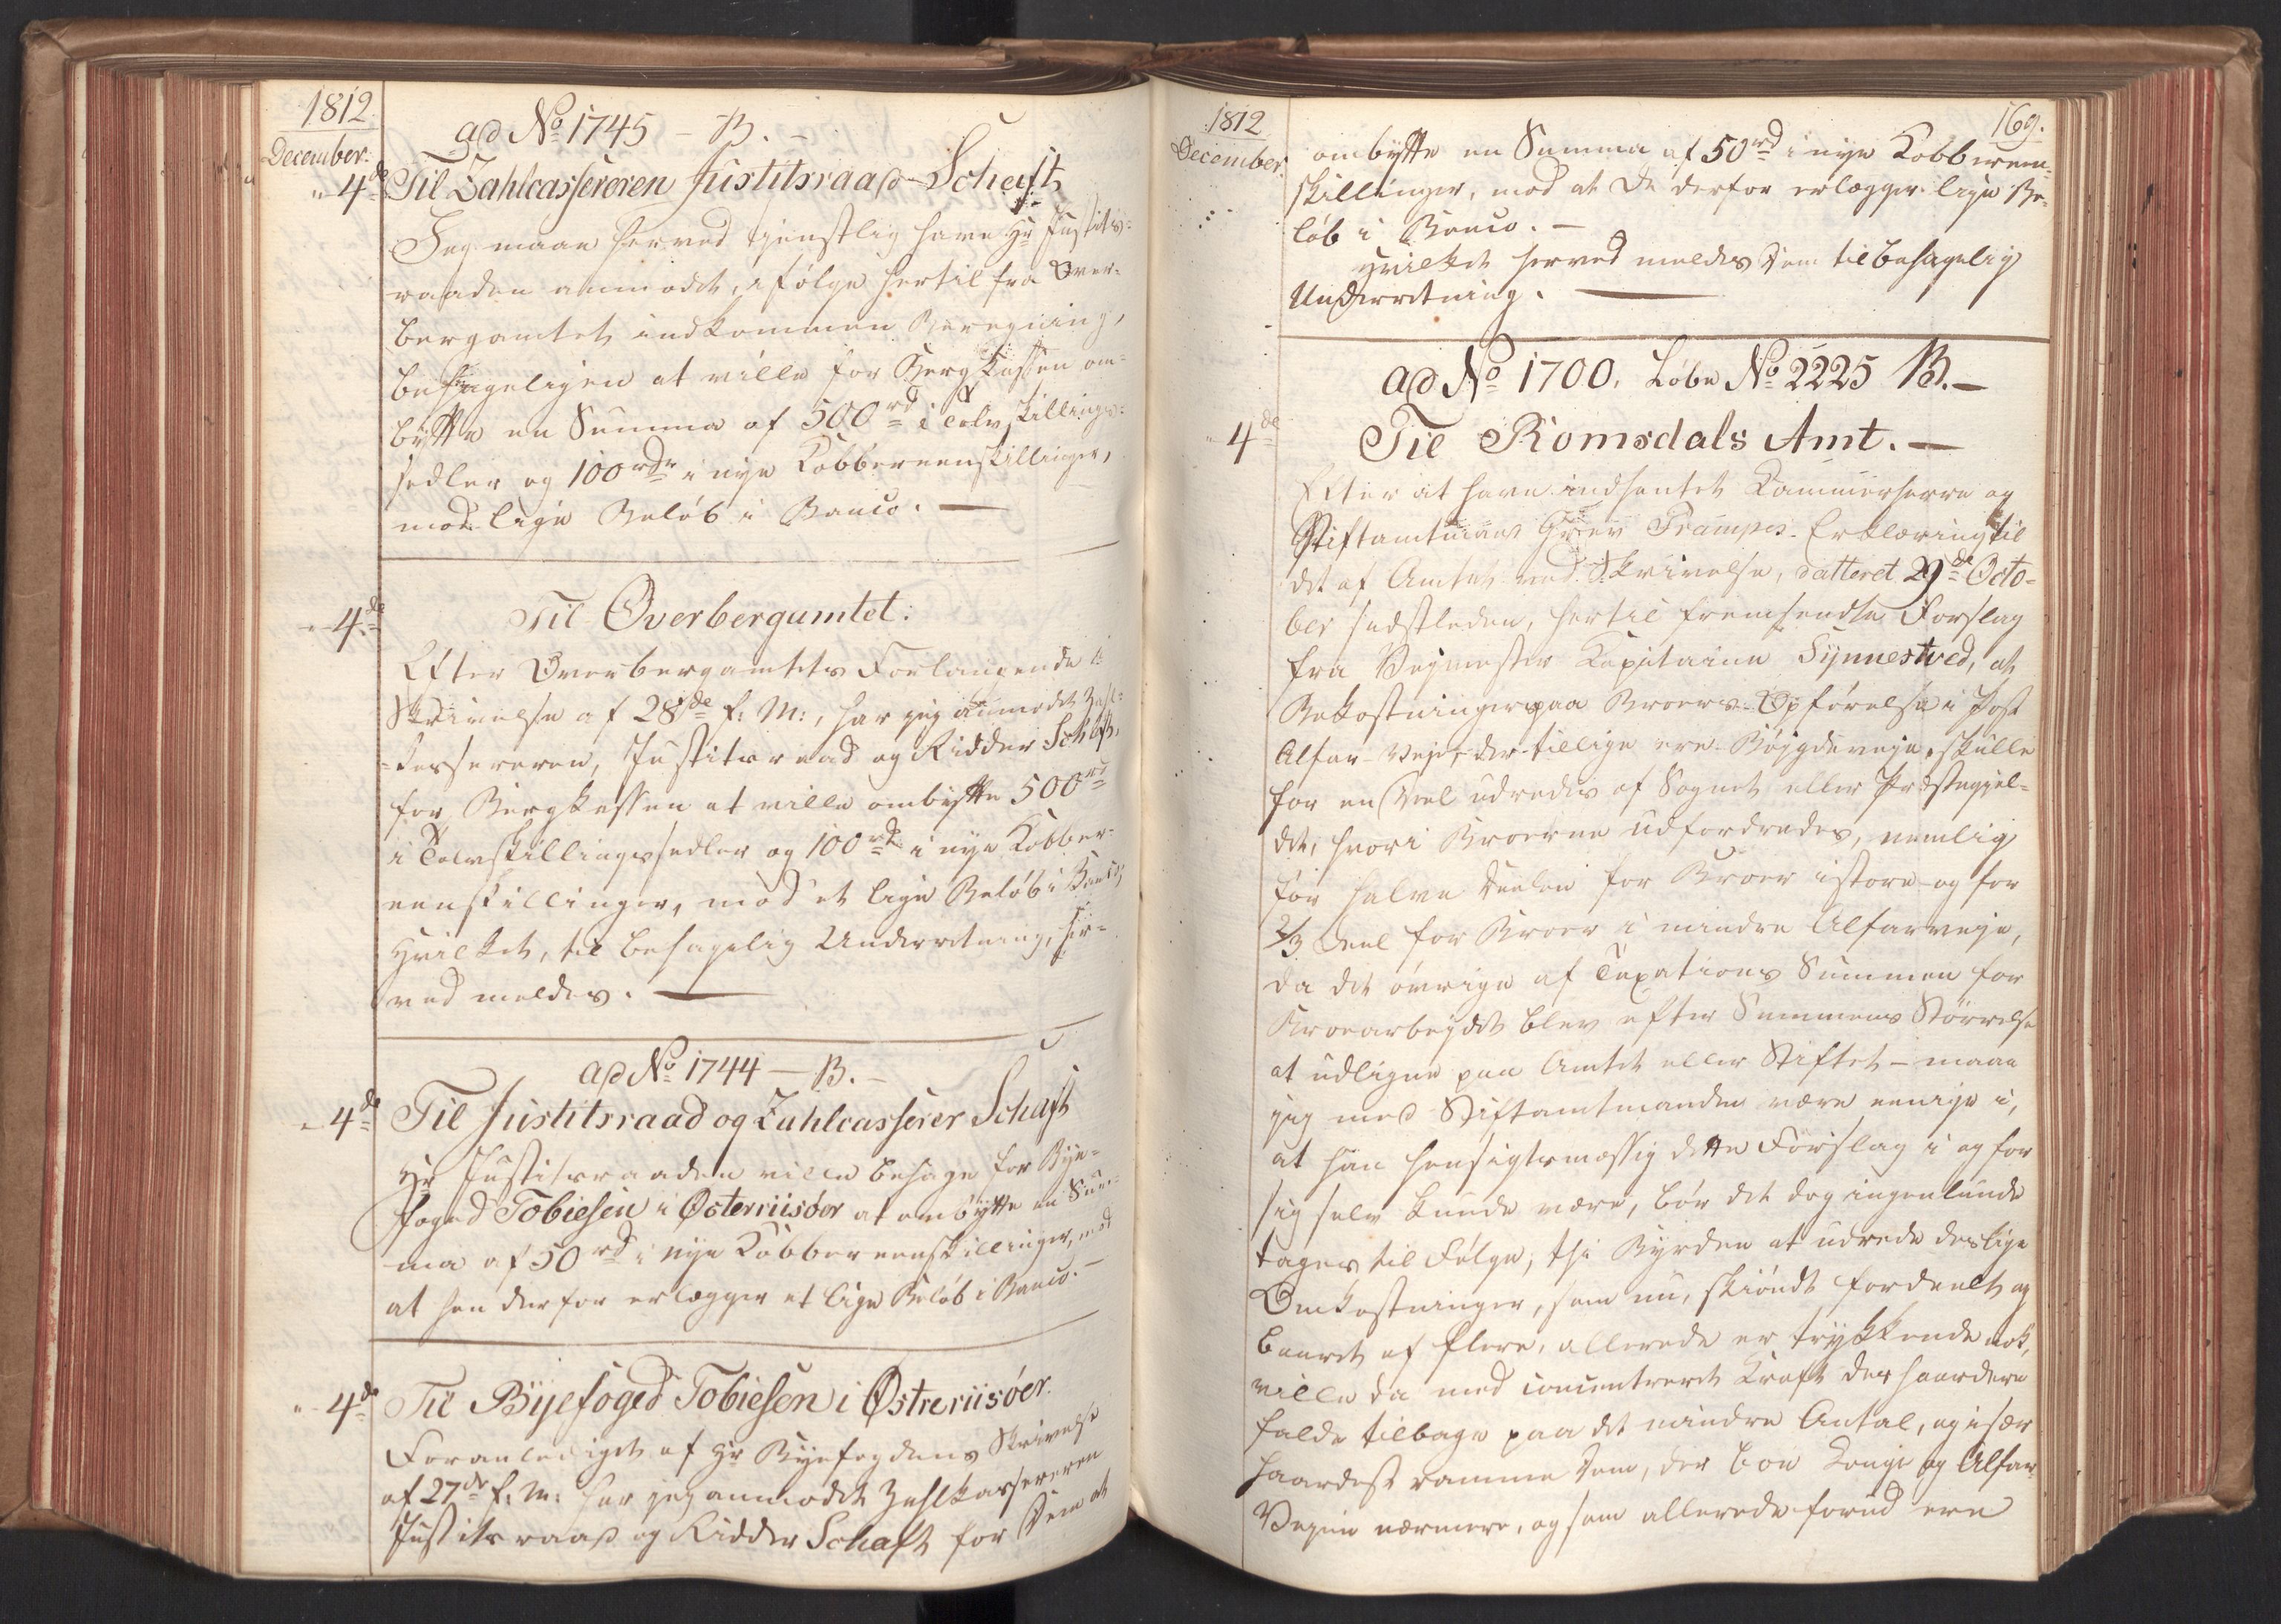 1812
December.
ad No 1745 – B. –
" 4de Til Zahlcasserøren Justitsraad Schaft
Jeg maae herved tjenstlig have Hr Justits-
raaden anmodet, ifølge hertil fra Over-
bergamtet indkommen Beregning,
behageligen at ville for Bergkassen om-
bytte en Summa af 500 rd i Tolvskillings-
sedler og 100 rdr i nye Kobbereenskillinger,
mod lige Beløb i Banco. —
" 4de Til Overbergamtet.
Efter Overbergamtets Forlangende i
Skrivelse af 28de f: M:, har jeg anmodet Zahl-
kassereren, Justitsraad og Ridder Schaft,
for Bergkassen at ville ombytte 500 rd
i Tolvskillingssedler og 100 rd i nye Kobber-
eenskillinger, mod et lige Beløb i Banco,
Hvilket, til behagelig Underretning, her-
ved meldes. —
ad No 1744 — B. –
" 4de Til Justitsraad og Zahlcasserer Schaft
Hr Justitsraaden ville behage for Bye-
foged Tobiesen i Østerriisøer at ombytte en Sum-
ma af 50 rd i nye Kobbereenskillinger, mod
at han derfor erlægger et lige Beløb i Banco. –
" 4de Til Byefoged Tobiesen i Østreriisöer.
Foranlediget af Hr Byefogdens Skrivelse
af 27de f: M: har jeg anmodet Zahlkassereren
Justitsraad og Ridder Schaft for Dem at
1812
December.
169.
ombytte en Summa af 50 rd i nye Kobbereen-
skillinger, mod at De derfor erlægger lige Be-
løb i Banco. –
Hvilket herved meldes Dem til behagelig
Underretning. —
ad No 1700. Løbe No 2225 B. –
" 4de Til Romsdals Amt. —
Efter at have indhentet Kammerherre og
Stiftamtmand Grev Trampes Erklæring til
det af Amtet med Skrivelse, datteret 29de Octo-
ber sidstleden, hertil fremsendte Forslag
fra Vejmester Kapitaine Synnestved, at
Bekostninger paa Broers Opførelse i Post
Alfar-Veje, der tillige ere Bøjgdeveje, skulle
for en Deel udredes af Sognet eller Præstegjel-
det, hvori Broerne udfordredes, nemlig
for halve Deelen for Broer i store og for
2/3 Deel for Broer i mindre Alfarveje,
da det øvrige af Taxations Summen for
Broearbejdet blev efter Summens Størrelse
at udligne paa Amtet eller Stiftet – maae
jeg med Stiftamtmanden være eenige i,
at saa hensigtsmæssig dette Forslag i og for
sig selv kunde være, bør det dog ingenlunde
tages til Følge, thi Byrden at udrede deslige
Omkostninger, som nu, skiøndt fordeelt og
baaret af flere, allerede er trykkende nok,
ville da med concentreret Kraft des haardere
falde tilbage paa det mindre Antal, og især
haardest ramme dem, der boe Konge og Alfar-
Vejene nærmere, og som allerede forud ere